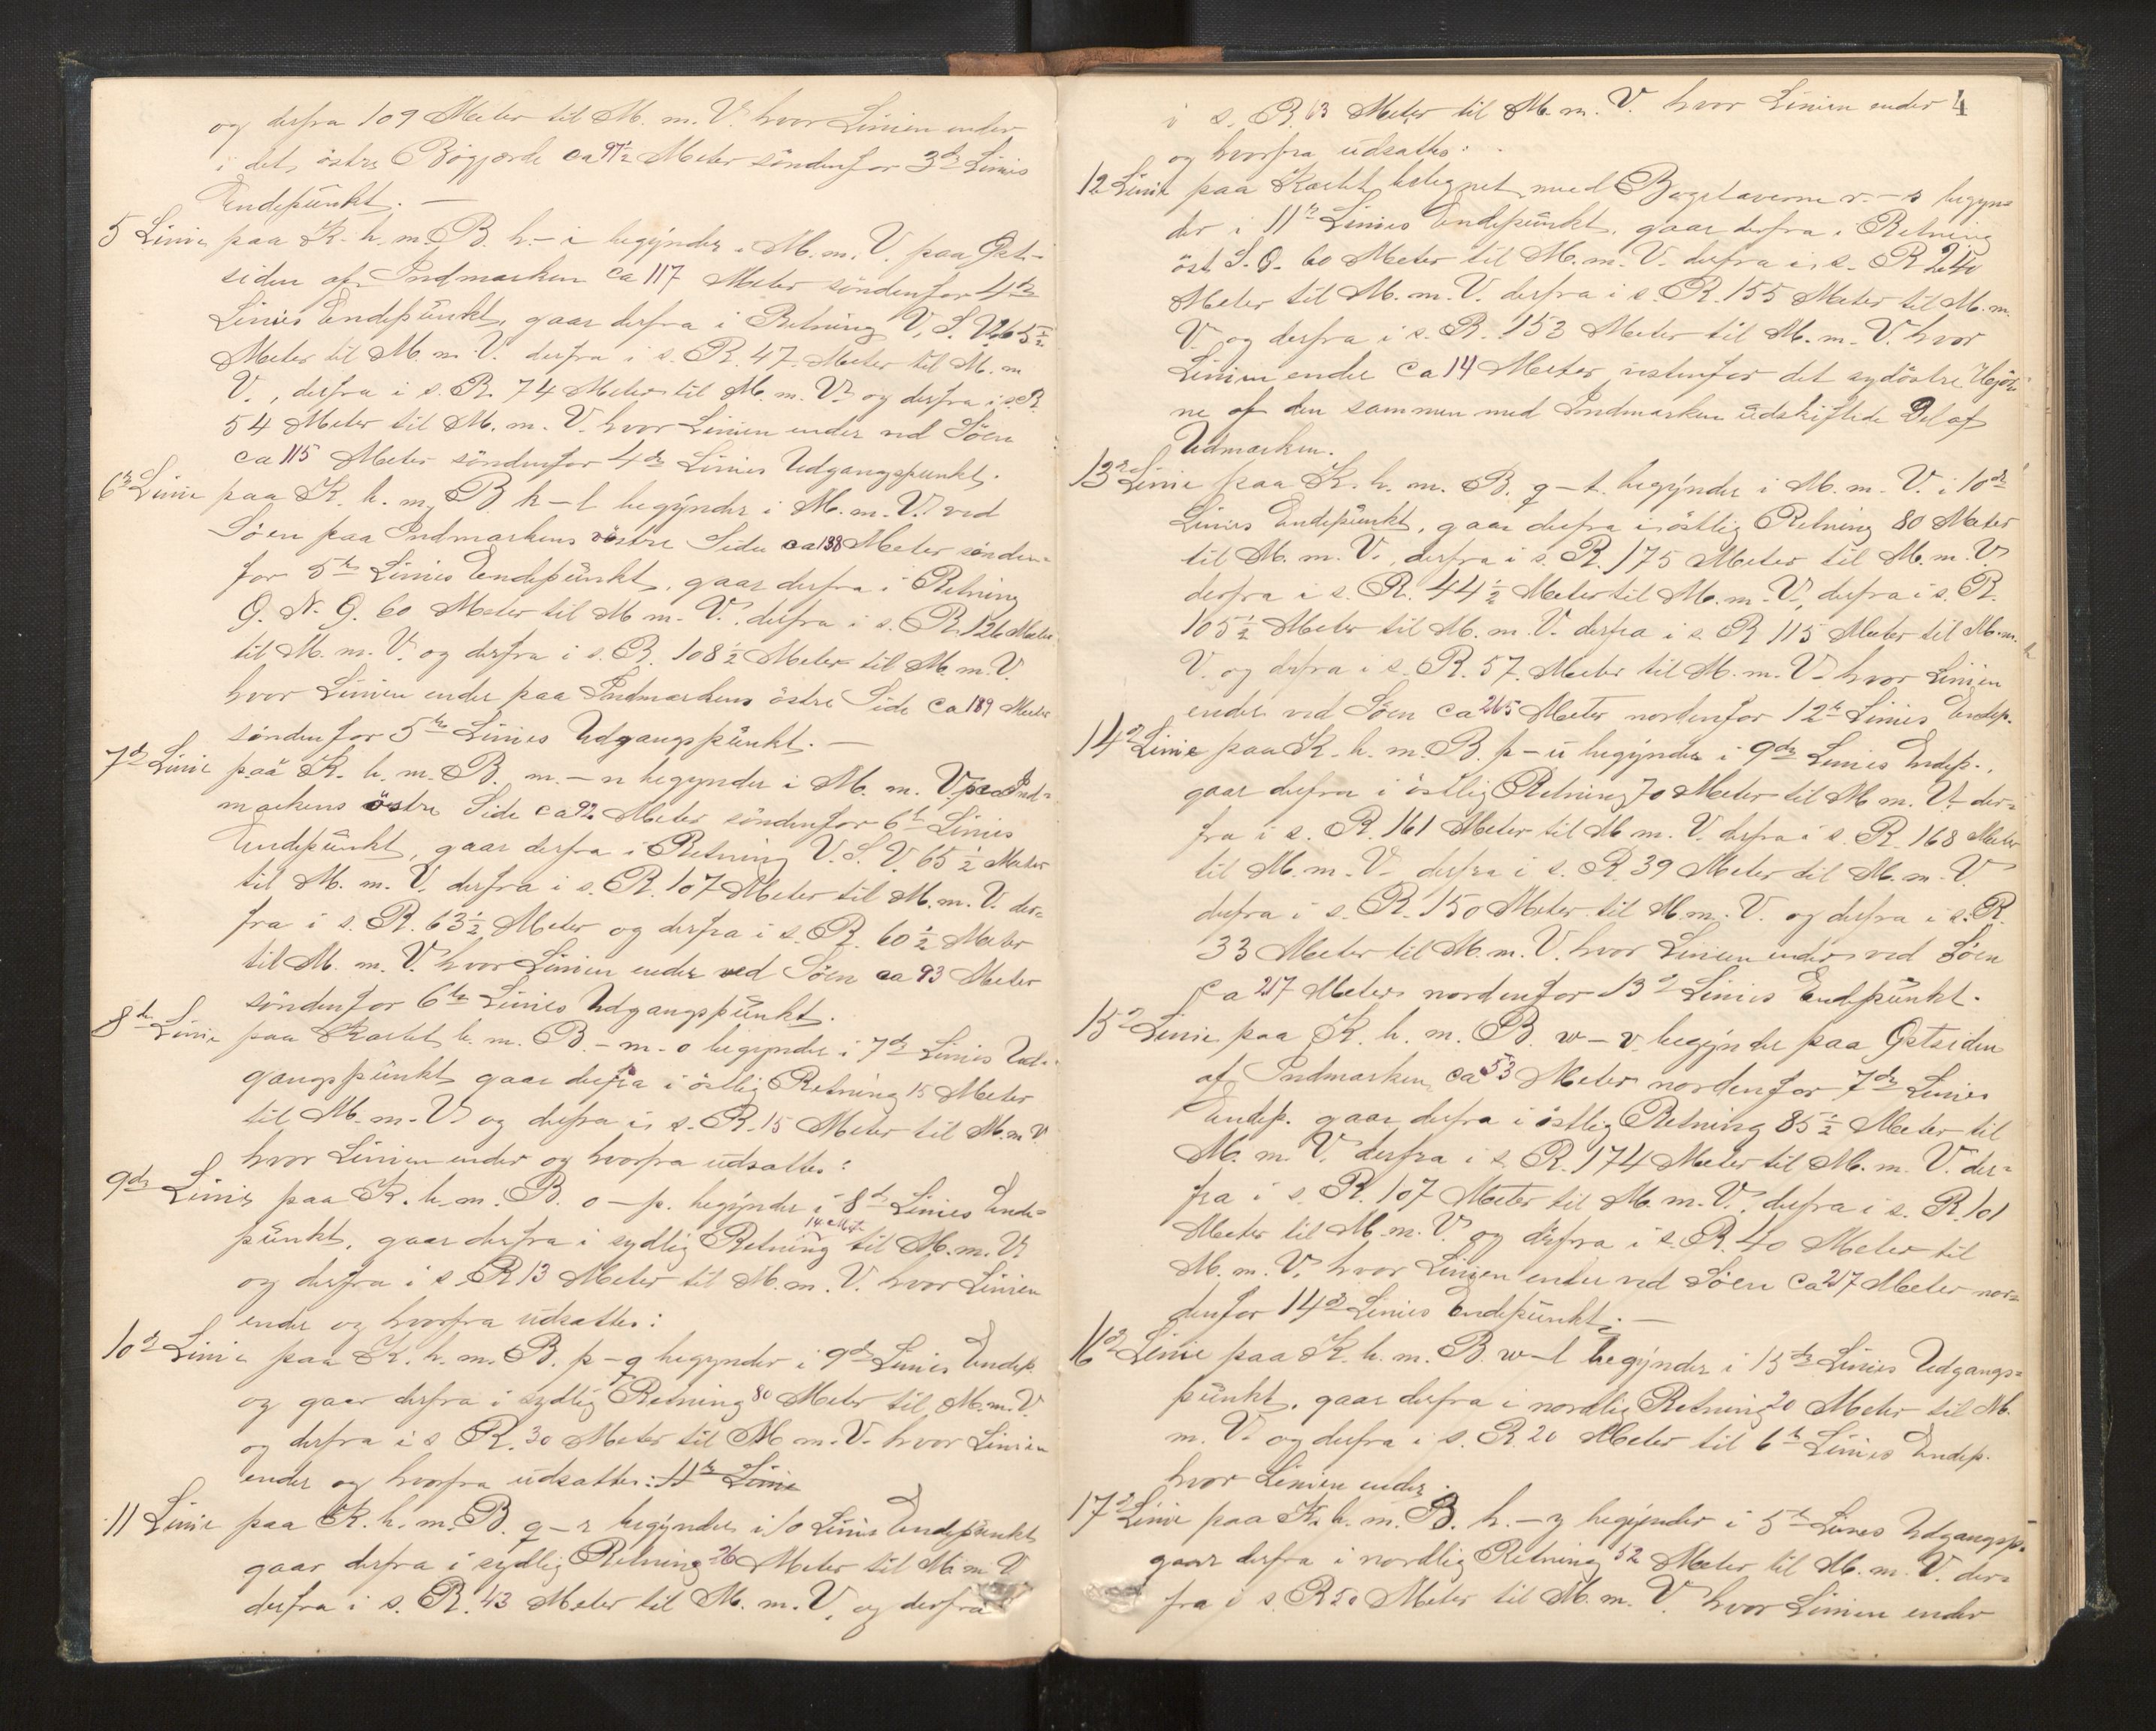 og derfra 109 Meter til M. m. V. hvor Linien ender
i det östre Bögjærde ca 97½ Meter söndenfor 3die Linies
Endepunkt. —
5 Linie paa K. h. m. B. h. – i begynder i M. m. V. paa Öst-
siden af Indmarken ca 117 Meter söndenfor 4de
Linies Endepunkt, gaar derfra i Retning V. S. V.
Meter til M. m. V. derfra i s. R. 47 Meter til M. m
V., derfra i s. R. 74 Meter til M. m. V. og derfra i s. R.
54 Meter til M. m. V. hvor Linien ender ved Söen
ca 115 Meter söndenfor 4de Linies Udgangspunkt.
6te Linie paa K. h. m. B. k – l begynder i M. m. V. ved
Söen paa Indmarkens vestre Side ca 138 Meter sönden-
for 5te Linies Endepunkt, gaar derfra i Retning
Ö. N. Ö. 60 Meter til M m. V. derfra i s. R. 126 Meter
til M. m. V. og derfra i s. R. 108½ Meter til M. m. V.
hvor Linien ender paa Indmarkens östre Side ca 189 Meter
söndenfor 5te Linies Udgangspunkt. —
7de Linie paa K. h. m. B. m. – n begynder i M. m. V. paa Ind-
markens östre Side ca 92 Meter söndenfor 6te Linies
Endepunkt, gaar derfra i Retning V. S. V. 65½ Meter
til M. m. V. derfra i s. R. 107 Meter til M. m. V. der-
fra i s. R. 63½ Meter og derfra i s. R. 60½ Meter
til M. m. V. hvor Linien ender ved Söen ca 93 Meter
söndenfor 6te Linies Udgangspunkt.
8de Linie paa Kartet b. m. B. – m – o begynder i 7de Linies Ud-
gangspunkt gaar derfra i östlig Retning 15 Meter
til M. m. V. og derfra i s. R. 15 Meter til M. m V
hvor Linien ender og hvorfra udsattes:
9de Linie paa K. h. m. B. o – p. begynder i 8de Linies Ende-
punkt, gaar derfra i sydlig Retning 14 Mt. til M. m. V.
og derfra i s R 13 Meter til M. m. V. hvor Linien
ender og hvorfra udsattes:
10de Linie paa K. h. m. B. p – q begynder i 9de Linies Endep.
og gaar derfra i sydlig Retning 80 Meter til M. m. V.
og derfra i s R. 30 Meter til M m. V. hvor Linien
ender og hvorfra udsattes: 11te Linie
11 Linie paa K. h. m. B. q – r begynder i 10 Linies Endepunkt
gaar derfra i sydlig Retning 26 Meter til M. m V.
derfra i s. R. 43 Meter til M. m. V. og derfra
4
i s. R. 63 Meter til M. m. V. hvor Linien ender
og hvorfra udsattes:
12 Linie paa Kartet betegnet med Bogstaverne r. – s begyn-
der i 11te Linies Endepunkt, gaar derfra i Retning
öst S. Ö. 60 Meter til M. m. V. derfra i s. R 240
Meter til M. m. V. derfra i s. R. 155 Meter til M. m.
V. og derfra i s. R. 153 Meter til M. m. V. hvor
Linien ender ca 14 Meter vestenfor det sydöstre Hjör-
ne af den sammen med Indmarken udskiftede Del af
Udmarken.
13de Linie paa K. h. m. B. q – t. begynder i M. m. V. i 10de
Linies Endepunkt, gaar derfra i östlig Retning 80 Meter
til M. m. V., derfra i s. R. 175 Meter til M. m. V.
derfra i s. R. 44½ Meter til M. m. V, derfra i s. R.
105½ Meter til M. m. V. derfra i s R 115 Meter til M. m.
V. og derfra i s. R. 57. Meter til M. m. V. hvor Linien
ender ved Söen ca 265 Meter nordenfor 12te Linies Endep.
14de Linie paa K. h. m. B. p – u begynder i 9de Linies Endep.,
gaar derfra i östlig Retning 70 Meter til M m. V. der-
fra i s. R. 161 Meter til M m. V. derfra i s. R. 168 Meter
til M. m. V. derfra i s. R. 39 Meter til M. m. V.
derfra i s. R. 150 Meter til M. m. V. og derfra i s. R.
33 Meter til M. m. V. hvor Linien ender ved Söen
ca 217 Meter nordenfor 13de Linies Endepunkt.
15de Linie paa K. h. m. B. w – v. begynder paa Östsiden
af Indmarken, ca 53 Meter nordenfor 7de Linies
Endep. gaar derfra i östlig Retning 85½ Meter til
M. m. V. derfra i s R. 174 Meter til M. m. V. der-
fra i s. R. 107 Meter til M. m. V. derfra i s. R. 101
Meter til M. m. V. og derfra i s. R. 40 Meter til
M. m. V. hvor Linien ender ved Söen ca 217 Meter nor-
denfor 14de Linies Endepunkt. —
16de Linie paa K. h. m. B. w – l begynder i 15de Linies Udgangs-
punkt, gaar derfra i nordlig Retning 20 Meter til M.
m. V. og derfra i s. R. 20 Meter til 6te Linies Endep.
hvor Linien ender.
17de Linie paa K. h. m. B. h. – y begynder i 5te Linies Udgangsp.
gaar derfra i nordlig Retning 52 Meter til M. m. V. der-
fra i s. R 50 Meter til M. m. V. hvor Linien ender